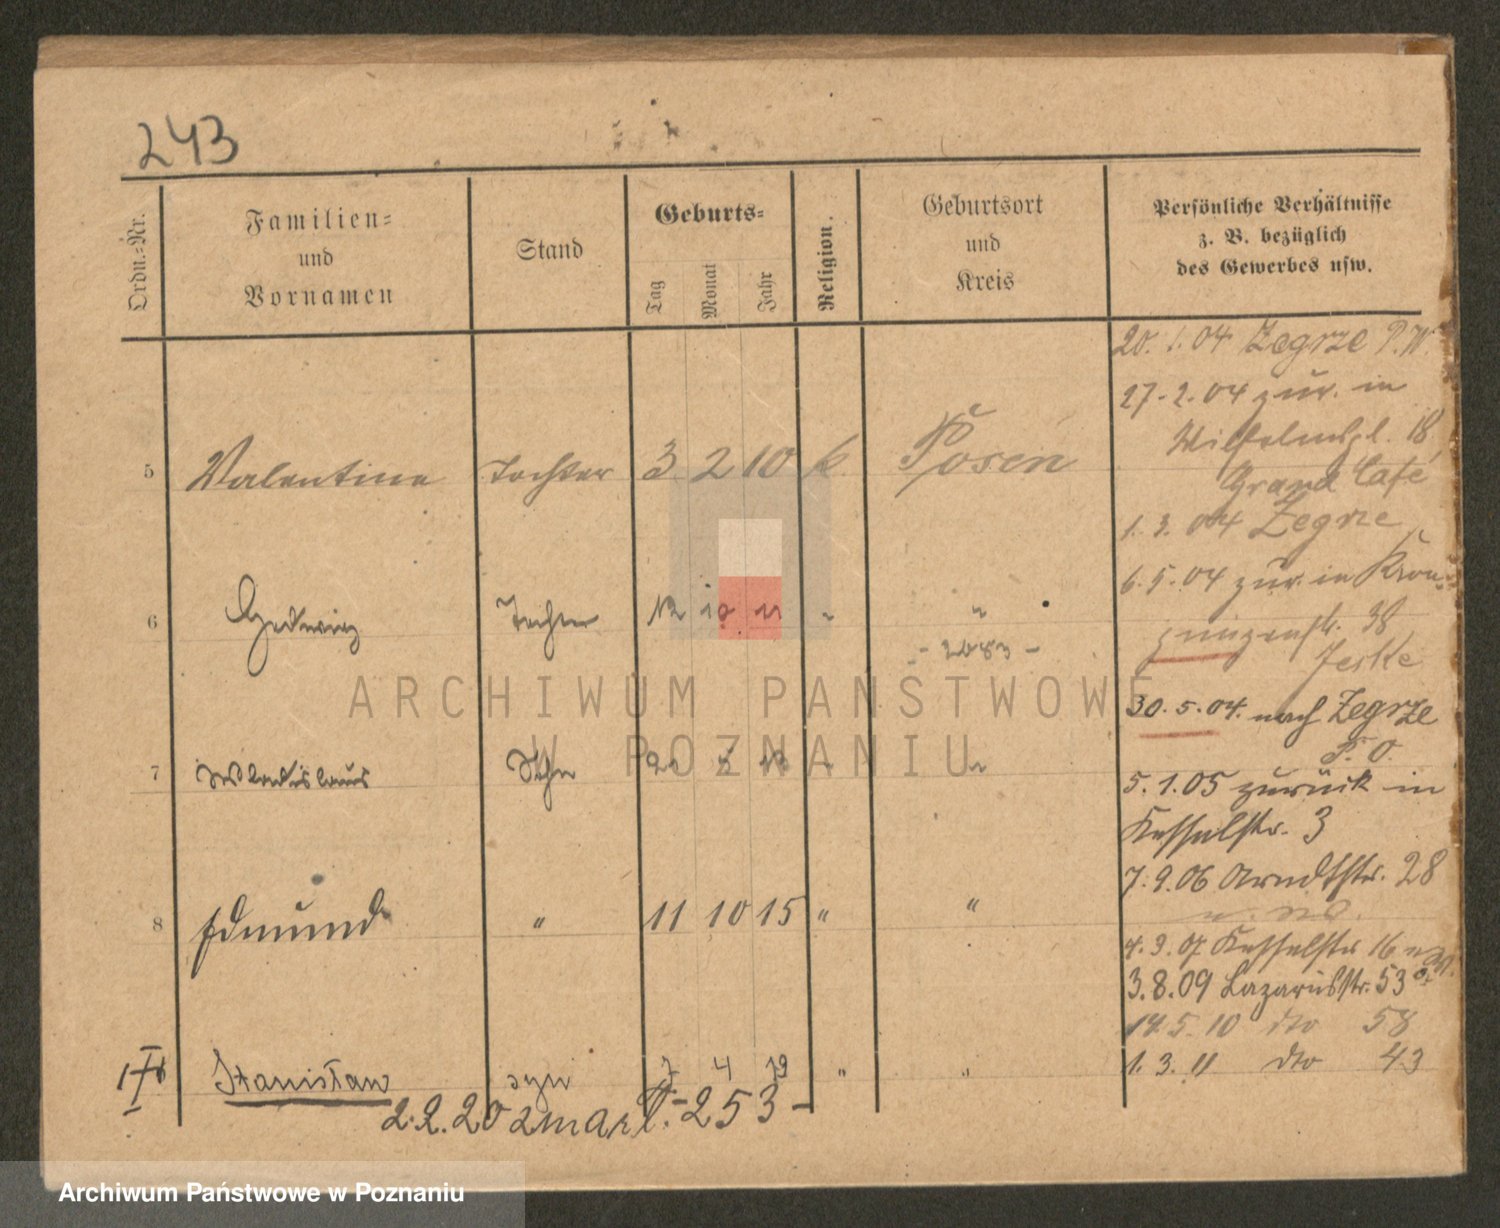 243
Ordn.-Nr.
Familien-
und
Vornamen
Stand
Geburts-
Tag
Monat
Jahr
Religion.
Geburtsort
und
Kreis
Persönliche Verhältnisse
z. B. bezüglich
des Gewerbes usw.
20. 1. 04 Zegrze P. W.
27. 2. 04 zur. in
Wilhelmspl. 18
Grand Café
1. 3. 04 Zegrze
6. 5. 04 zur. in Kron-
prinzenstr. 38
Jeske
30. 5. 04. nach Zegrze
P. O.
5. 1. 05 zurück in
Kesselstr. 3
7. 9. 06 Arndtstr. 28
4. 9. 07 Kesselstr 16
3. 8. 09 Lazarusstr. 53
14. 5. 10 dto 58
1. 3. 11 dto 43
5 Valentine Tochter 3 2 10 k. Posen
6 Hedwig Tochter 12 10 11 " "
7 Wladislaus Sohn " "
8 Edmund " 11 10 15 " "
Stanisław syn 7 4 19 " "
2. 2. 20 zmarł. - 253 -
ARCHIWUM PAŃSTWOWE
W POZNANIU
Archiwum Państwowe w Poznaniu